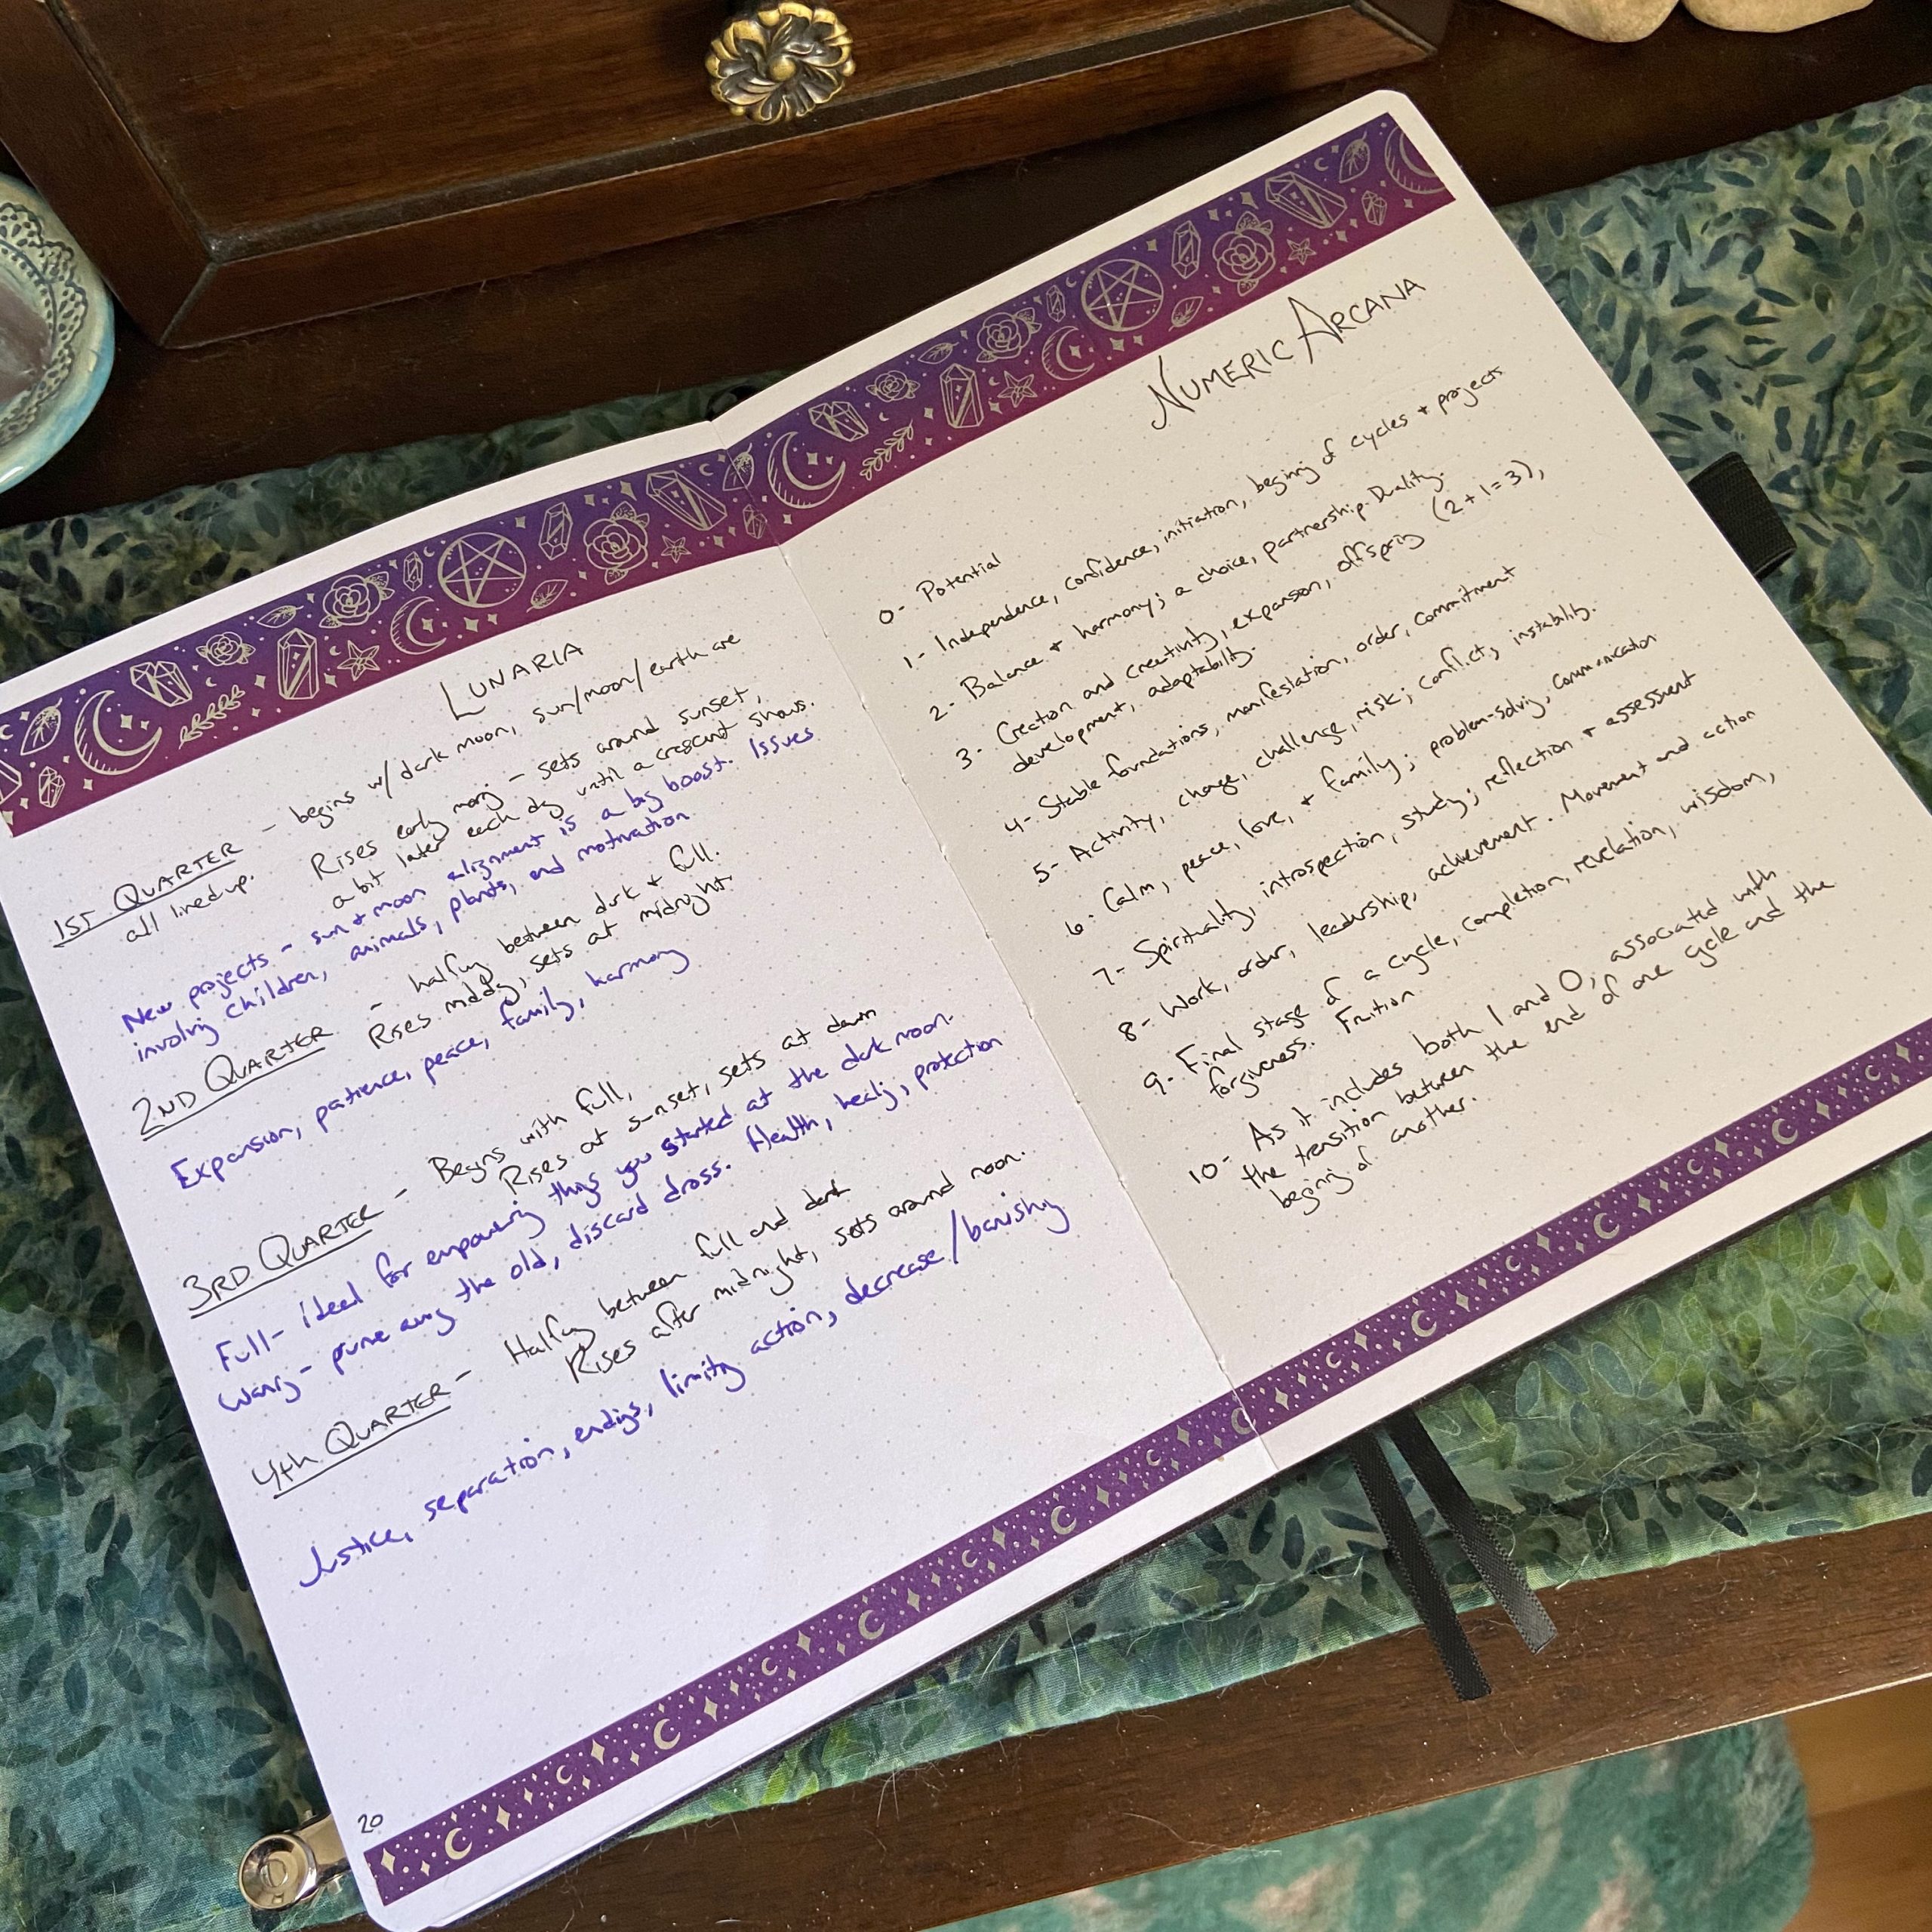 LUNARIA
1ST QUARTER - begins w/dark moon, sun/moon/earth are
all lined up.
Rises early morng - sets around sunset,
a bit later each day until a crescent shows.
New projects - sun + moon alignment is a big boost. Issues
involvg children, animals, plants, and motivation
2ND QUARTER - halfwy between dark + full.
Rises midday, sets at midnight.
Expansion, patience, peace, family, harmony
3RD QUARTER - Begins with full,
Rises at sunset, sets at dawn
Full - ideal for empowering things you started at the dark moon.
Waning - prune away the old, discard dross. Health, healg, protection
4th QUARTER - Halfwy between full and dark
Rises after midnight, sets around noon.
Justice, separation, endigs, limitg action, decrease/banishg
20
NUMERIC ARCANA
0- Potential
1- Independence, confidence, initiation, begining of cycles + projects
2- Balance + harmony; a choice, partnership. Duality.
3- Creation and creativity, expansion, offspring (2+1=3),
development, adaptability.
4- Stable foundations, manifestation, order, commitment
5- Activity, change, challenge, risk; conflict, instability.
6- Calm, peace, love, + family; problem-solving, communication
7- Spirituality, introspection, study; reflection + assessment
8- Work, order, leadership, achievement. Movement and action
9- Final stage of a cycle, completion, revelation, wisdom,
forgiveness. Fruition
10- As it includes both 1 and 0, associated with
the transition between the end of one cycle and the
begining of another.